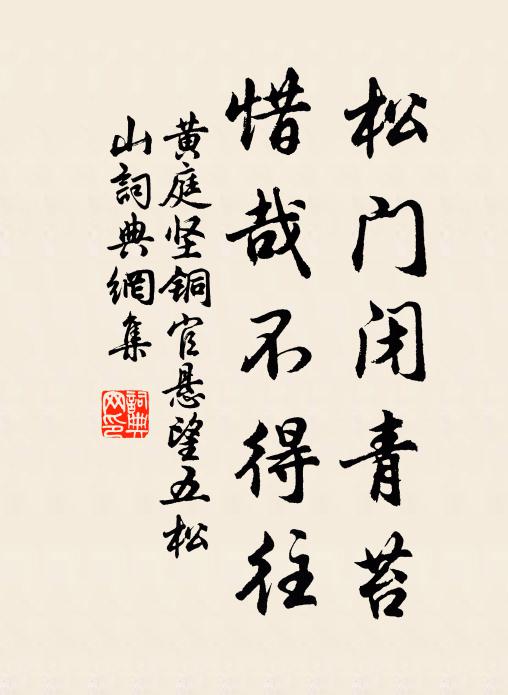 松门闭青苔
惜哉不得往
黄庭坚铜官悬望五松
山詞典網集
詞典
网印